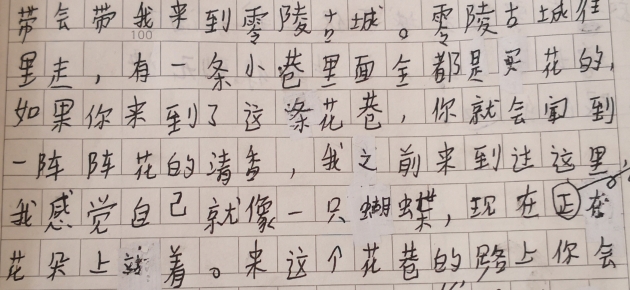 带会带我来到零陵古城。零陵古城往
100
里走，有一条小巷里面全都是买花的，
如果你来到了这条花巷，你就会闻到
一阵阵花的清香，我之前来到过这里，
我感觉自己就像一只蝴蝶，现在正在
花朵上站着。来这个花巷的路上你会